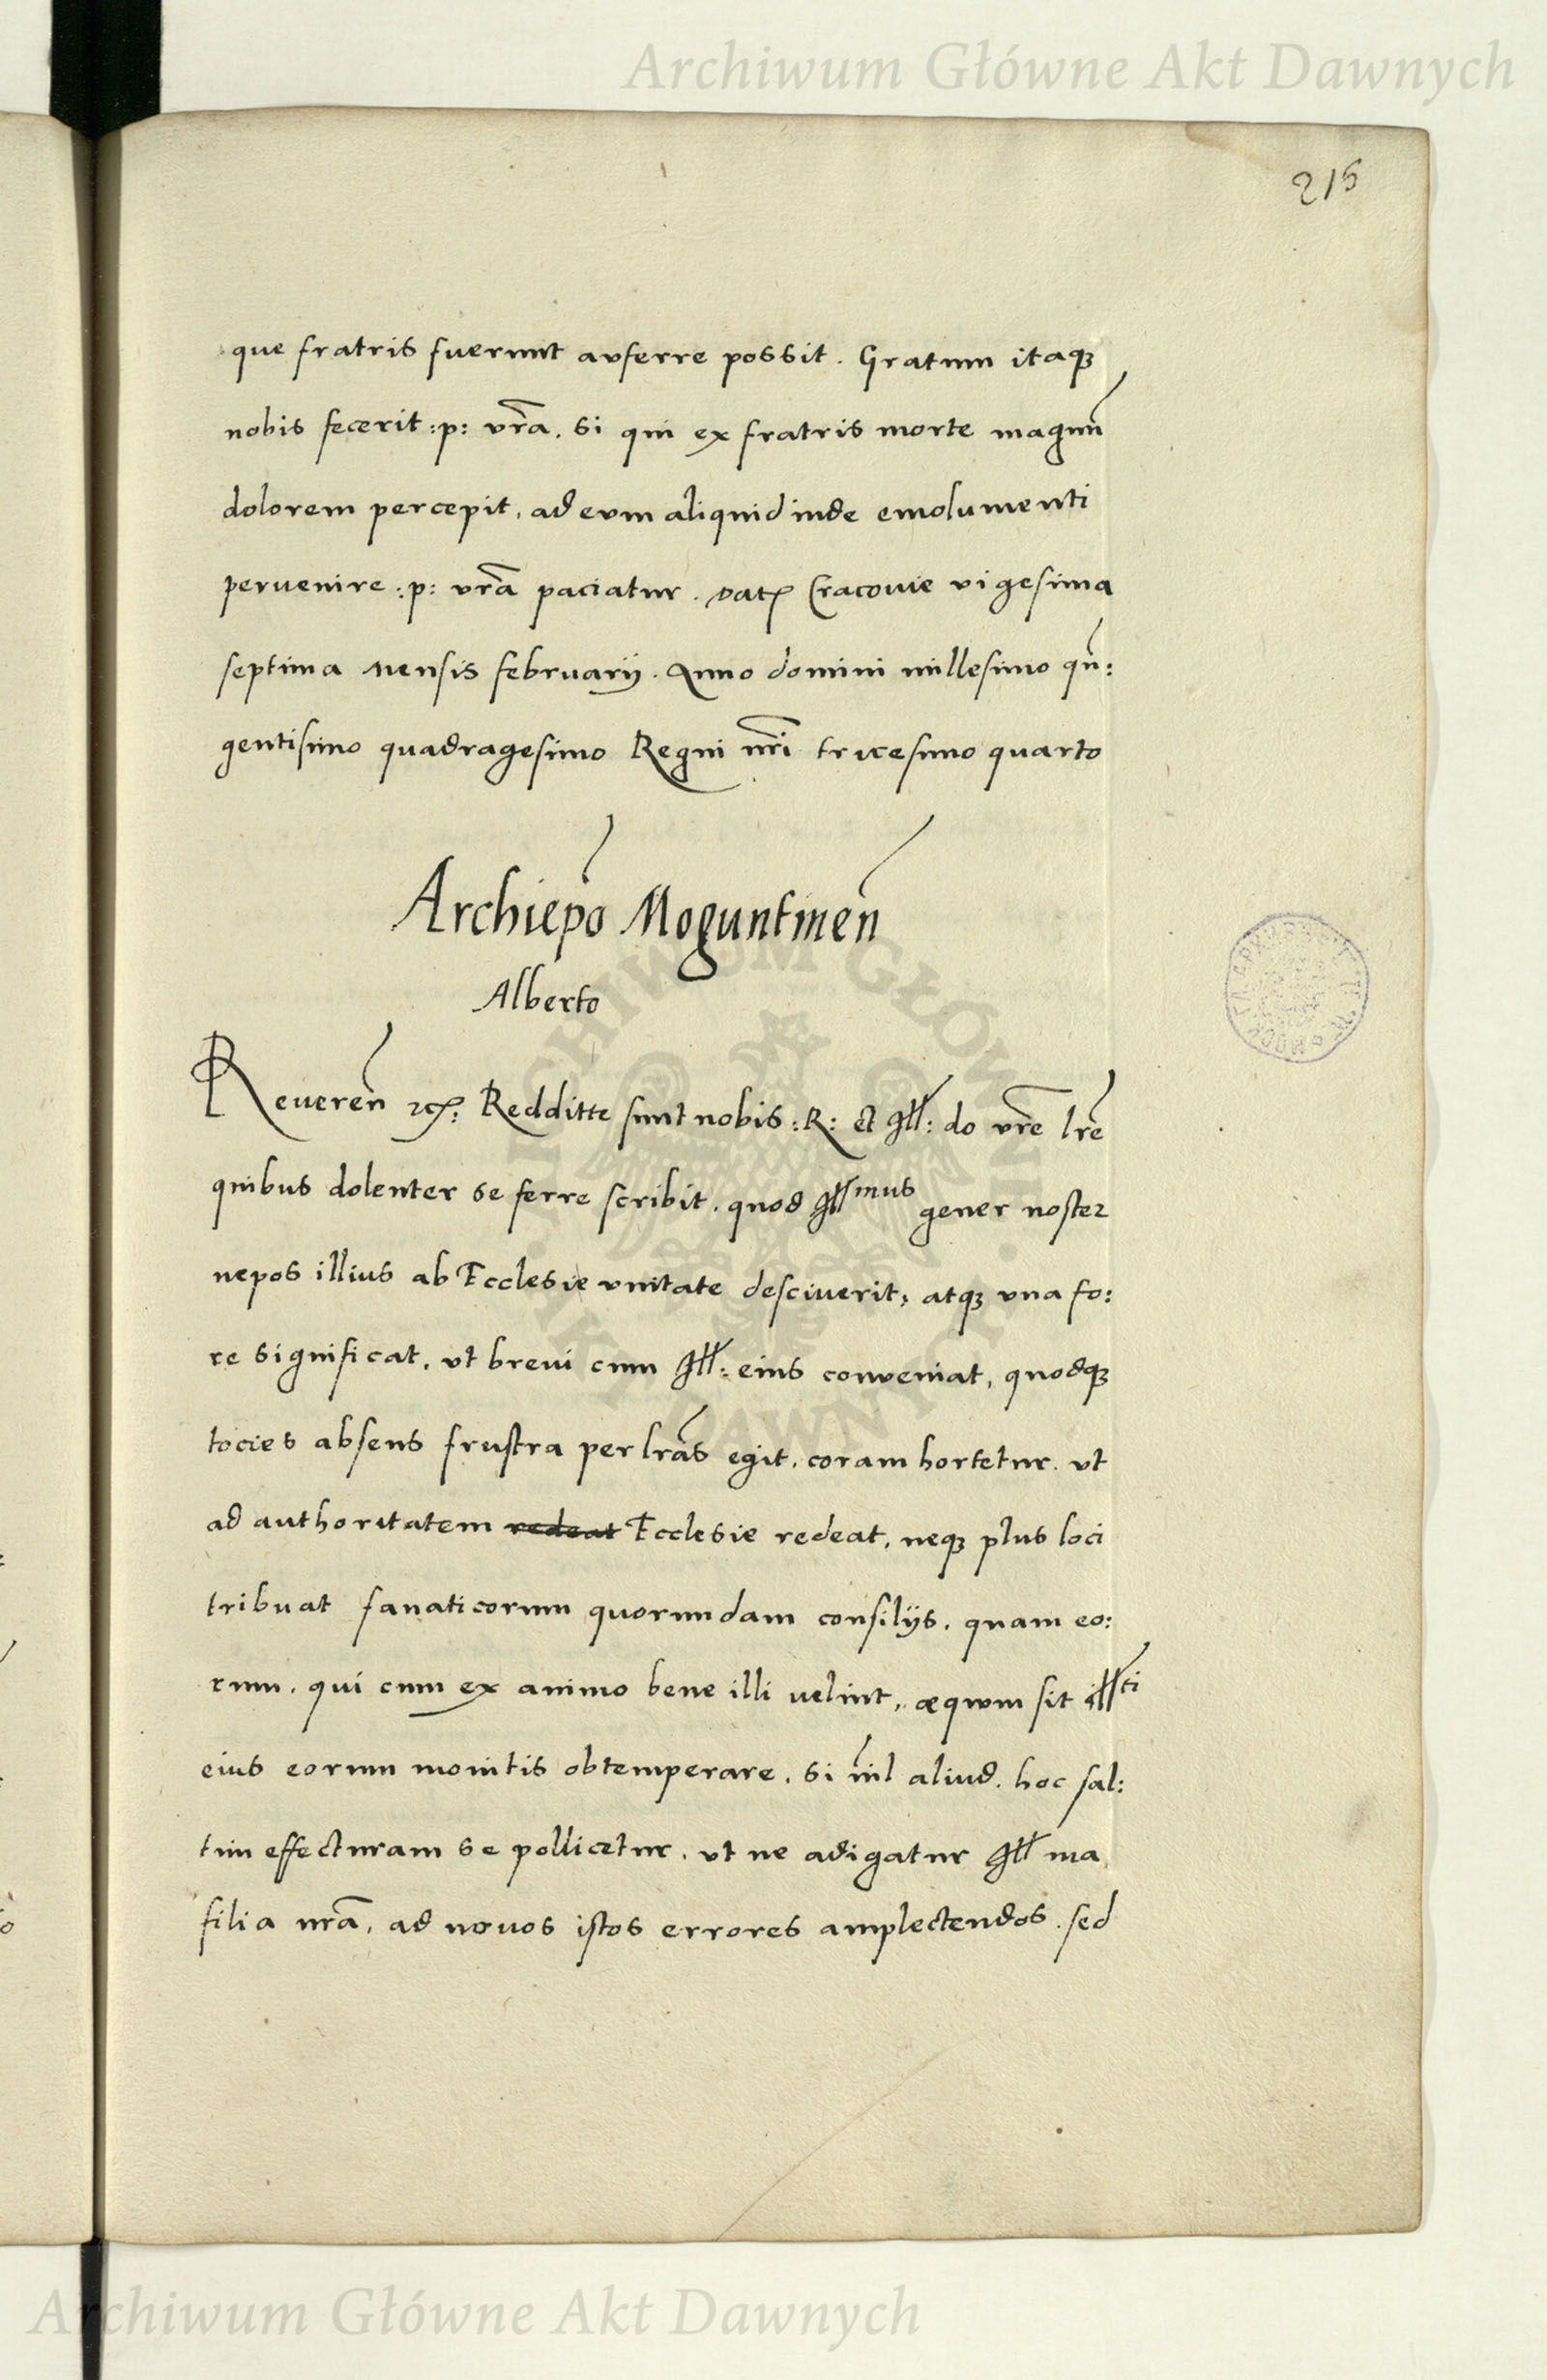 Archiwum Główne Akt Dawnych
215
que fratris fuerunt auferre possit. Gratum itaqꝫ
nobis fecerit :p: vr̃a. si qui ex fratris morte magnũ
dolorem percepit, ad eum aliquid inde emolumenti
peruenire :p: vr̃a paciatur. Datꝭ Cracouie vigesima
septima mensis februarij. Anno domini millesimo qũ:
gentisimo quadragesimo Regni nr̃i tricesimo quarto
Archiepo͂ Moguntineñ
Alberto
Reuereñ ꝛcꝭ: Redditte sunt nobis :R: et Ill: do vr̃e lr̃e
quibus dolenter se ferre scribit. quod Illmus gener noster
nepos illius ab Ecclesie vnitate desciuerit, atqꝫ vna fo:
re significat, vt breui cum Ill: eius conveniat, quodqꝫ
tocies absens frustra per lr̃as egit, coram hortetur. vt
ad authoritatem redeat Ecclesie redeat, neqꝫ plus loci
tribuat fanaticorum quorundam consilijs. quam eo:
rum. qui cum ex animo bene illi velint, æquum sit Illti
eius eorum monitis obtemperare. si nĩl aliud. hoc sal:
tim effecturam se pollicetur. vt ne adigatur Ill ma
filia nr̃a, ad nouos istos errores amplectendos. sed
ARCHIWUM GŁÓWNE AKT DAWNYCH
Archiwum Główne Akt Dawnych